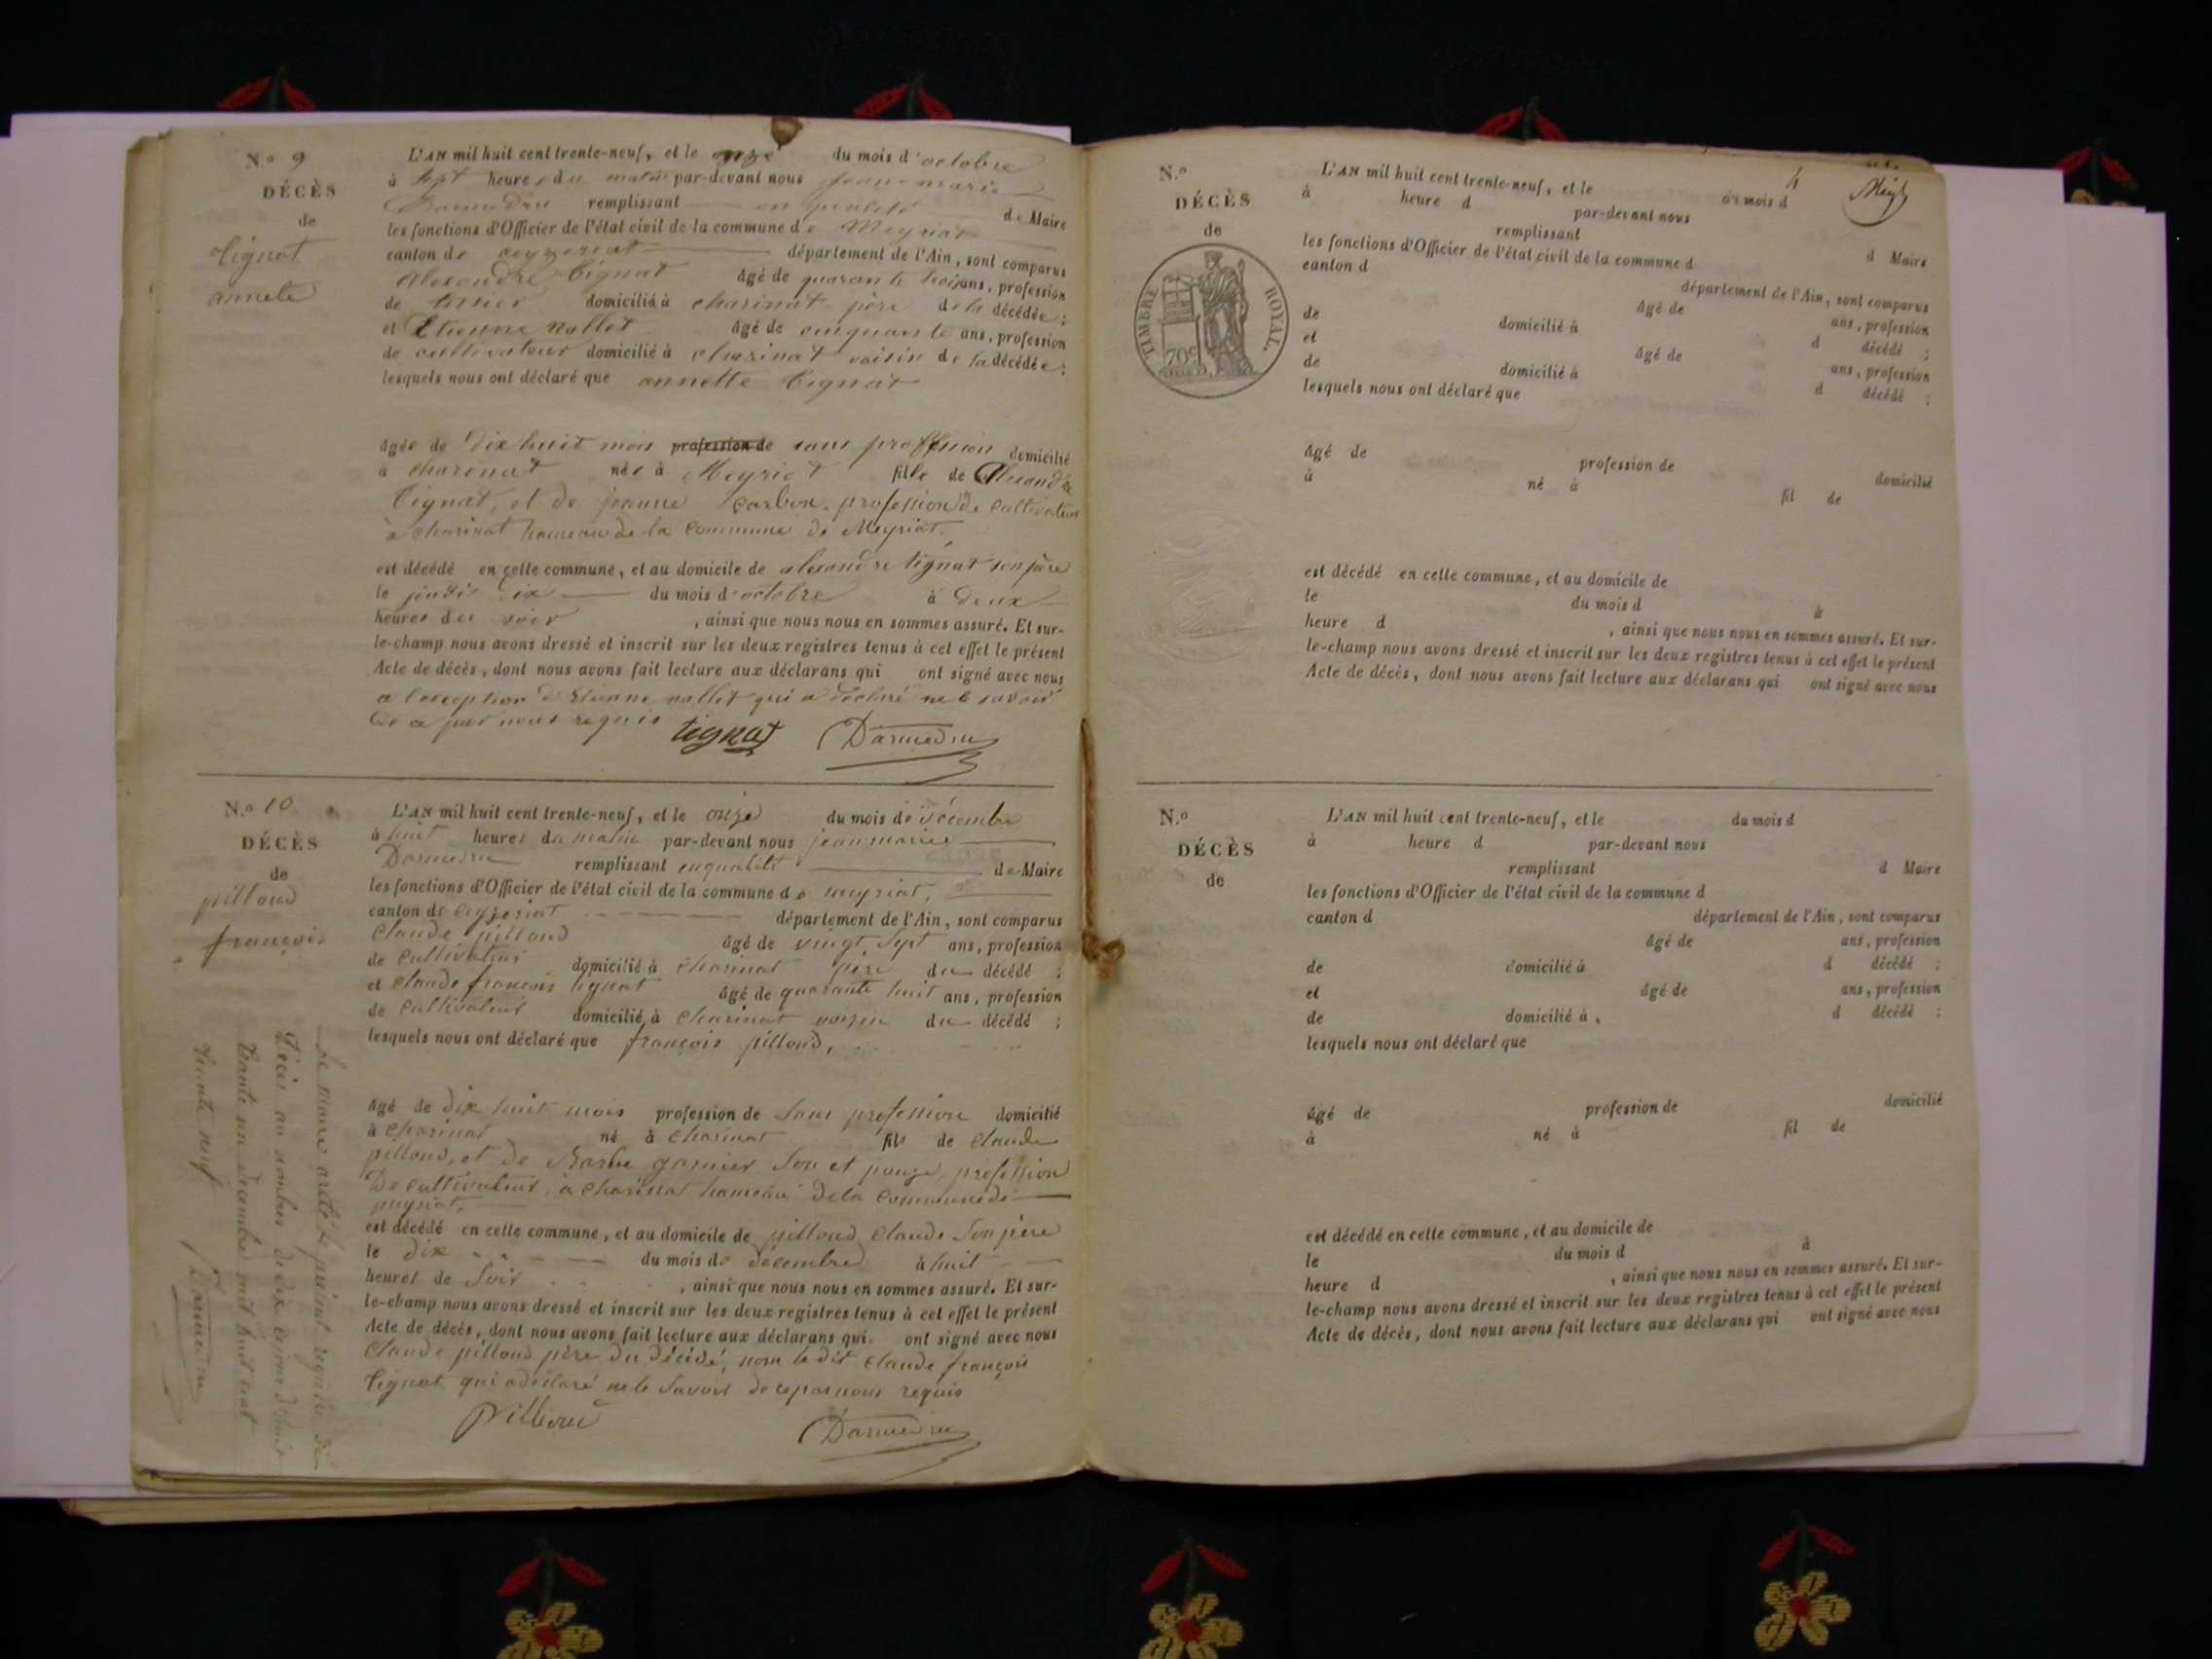 N.º 9
DÉCÈS
de
tignat
annete
L'AN mil huit cent trente-neuf, et le onze du mois d'octobre
à sept heures du matin par-devant nous jean-marie
Darmedru remplissant en qualité de Maire
les fonctions d'Officier de l'état civil de la commune de Meyriat
canton de ceyzeriat département de l'Ain, sont comparus
alexandre tignat âgé de quarante trois ans, profession
de domicilié à charinat père de la décédée;
et Etienne nallet âgé de cinquante ans, profession
de cultivateur domicilié à charinat voisin de la décédée;
lesquels nous ont déclaré que annette tignat
âgée de dix huit mois profession de sans proffesion domicilié
à charinat née à Meyriat fille de Alexandre
tignat, et de jeanne carbon, profession de cultivateur
à charinat hameau de la commune de Meyriat.
est décédé en cette commune, et au domicile de alexandre tignat son père
le jeudi dix du mois d'octobre à deux
heures du soir, ainsi que nous nous en sommes assuré. Et sur-
le-champ nous avons dressé et inscrit sur les deux registres tenus à cet effet le présent
Acte de décès, dont nous avons fait lecture aux déclarans qui ont signé avec nous
a l'exception d'Etienne nallet qui a déclaré ne le savoir
de ce par nous requis
tignat Darmedru
N.º 10
DÉCÈS
de
pilloud
françois
L'AN mil huit cent trente-neuf, et le onze du mois de décembre
à huit heures du matin par-devant nous jean marie
Darmedru remplissant en qualité de Maire
les fonctions d'Officier de l'état civil de la commune de meyriat,
canton de ceyzeriat département de l'Ain, sont comparus
Claude pilloud âgé de vingt sept ans, profession
de cultivateur domicilié à charinat père du décédé;
et claude françois tignat âgé de quarante huit ans, profession
de cultivateur domicilié à charinat voisin du décédé;
lesquels nous ont déclaré que françois pilloud,
âgé de dix huit mois profession de sans profession domicilié
à charinat né à charinat fils de claude
pilloud, et de Barbe garnier son et pouze, profession
De cultivateur, à charinat hameau de la commune de
meyriat,
est décédé en cette commune, et au domicile de pilloud claude son père
le dix du mois de décembre à huit
heures de soir, ainsi que nous nous en sommes assuré. Et sur-
le-champ nous avons dressé et inscrit sur les deux registres tenus à cet effet le présent
Acte de décès, dont nous avons fait lecture aux déclarans qui ont signé avec nous
claude pilloud père du décédé, non le dit claude françois
tignat qui a déclaré ne le savoir de ce par nous requis
pilloud Darmedru
Le maire arrête le présent registre de
Décès au nombre de dix ce jourd'huit
trante un décembre mil huit cent
trente neuf
Darmedru
N.º
DÉCÈS
de
TIMBRE ROYAL.
70c
4
L'AN mil huit cent trente-neuf, et le du mois d
à heure d par-devant nous
remplissant d Maire
les fonctions d'Officier de l'état civil de la commune d
canton d département de l'Ain, sont comparus
âgé de ans, profession
de domicilié à d décédé;
et âgé de ans, profession
de domicilié à d décédé;
lesquels nous ont déclaré que
âgé de profession de domicilié
à né à fil de
est décédé en cette commune, et au domicile de
le du mois d à
heure d , ainsi que nous nous en sommes assuré. Et sur-
le-champ nous avons dressé et inscrit sur les deux registres tenus à cet effet le présent
Acte de décès, dont nous avons fait lecture aux déclarans qui ont signé avec nous
N.º
DÉCÈS
de
L'AN mil huit cent trente-neuf, et le du mois d
à heure d par-devant nous
remplissant d Maire
les fonctions d'Officier de l'état civil de la commune d
canton d département de l'Ain, sont comparus
âgé de ans, profession
de domicilié à d décédé;
et âgé de ans, profession
de domicilié à d décédé;
lesquels nous ont déclaré que
âgé de profession de domicilié
à né à fil de
est décédé en cette commune, et au domicile de
le du mois d à
heure d , ainsi que nous nous en sommes assuré. Et sur-
le-champ nous avons dressé et inscrit sur les deux registres tenus à cet effet le présent
Acte de décès, dont nous avons fait lecture aux déclarans qui ont signé avec nous